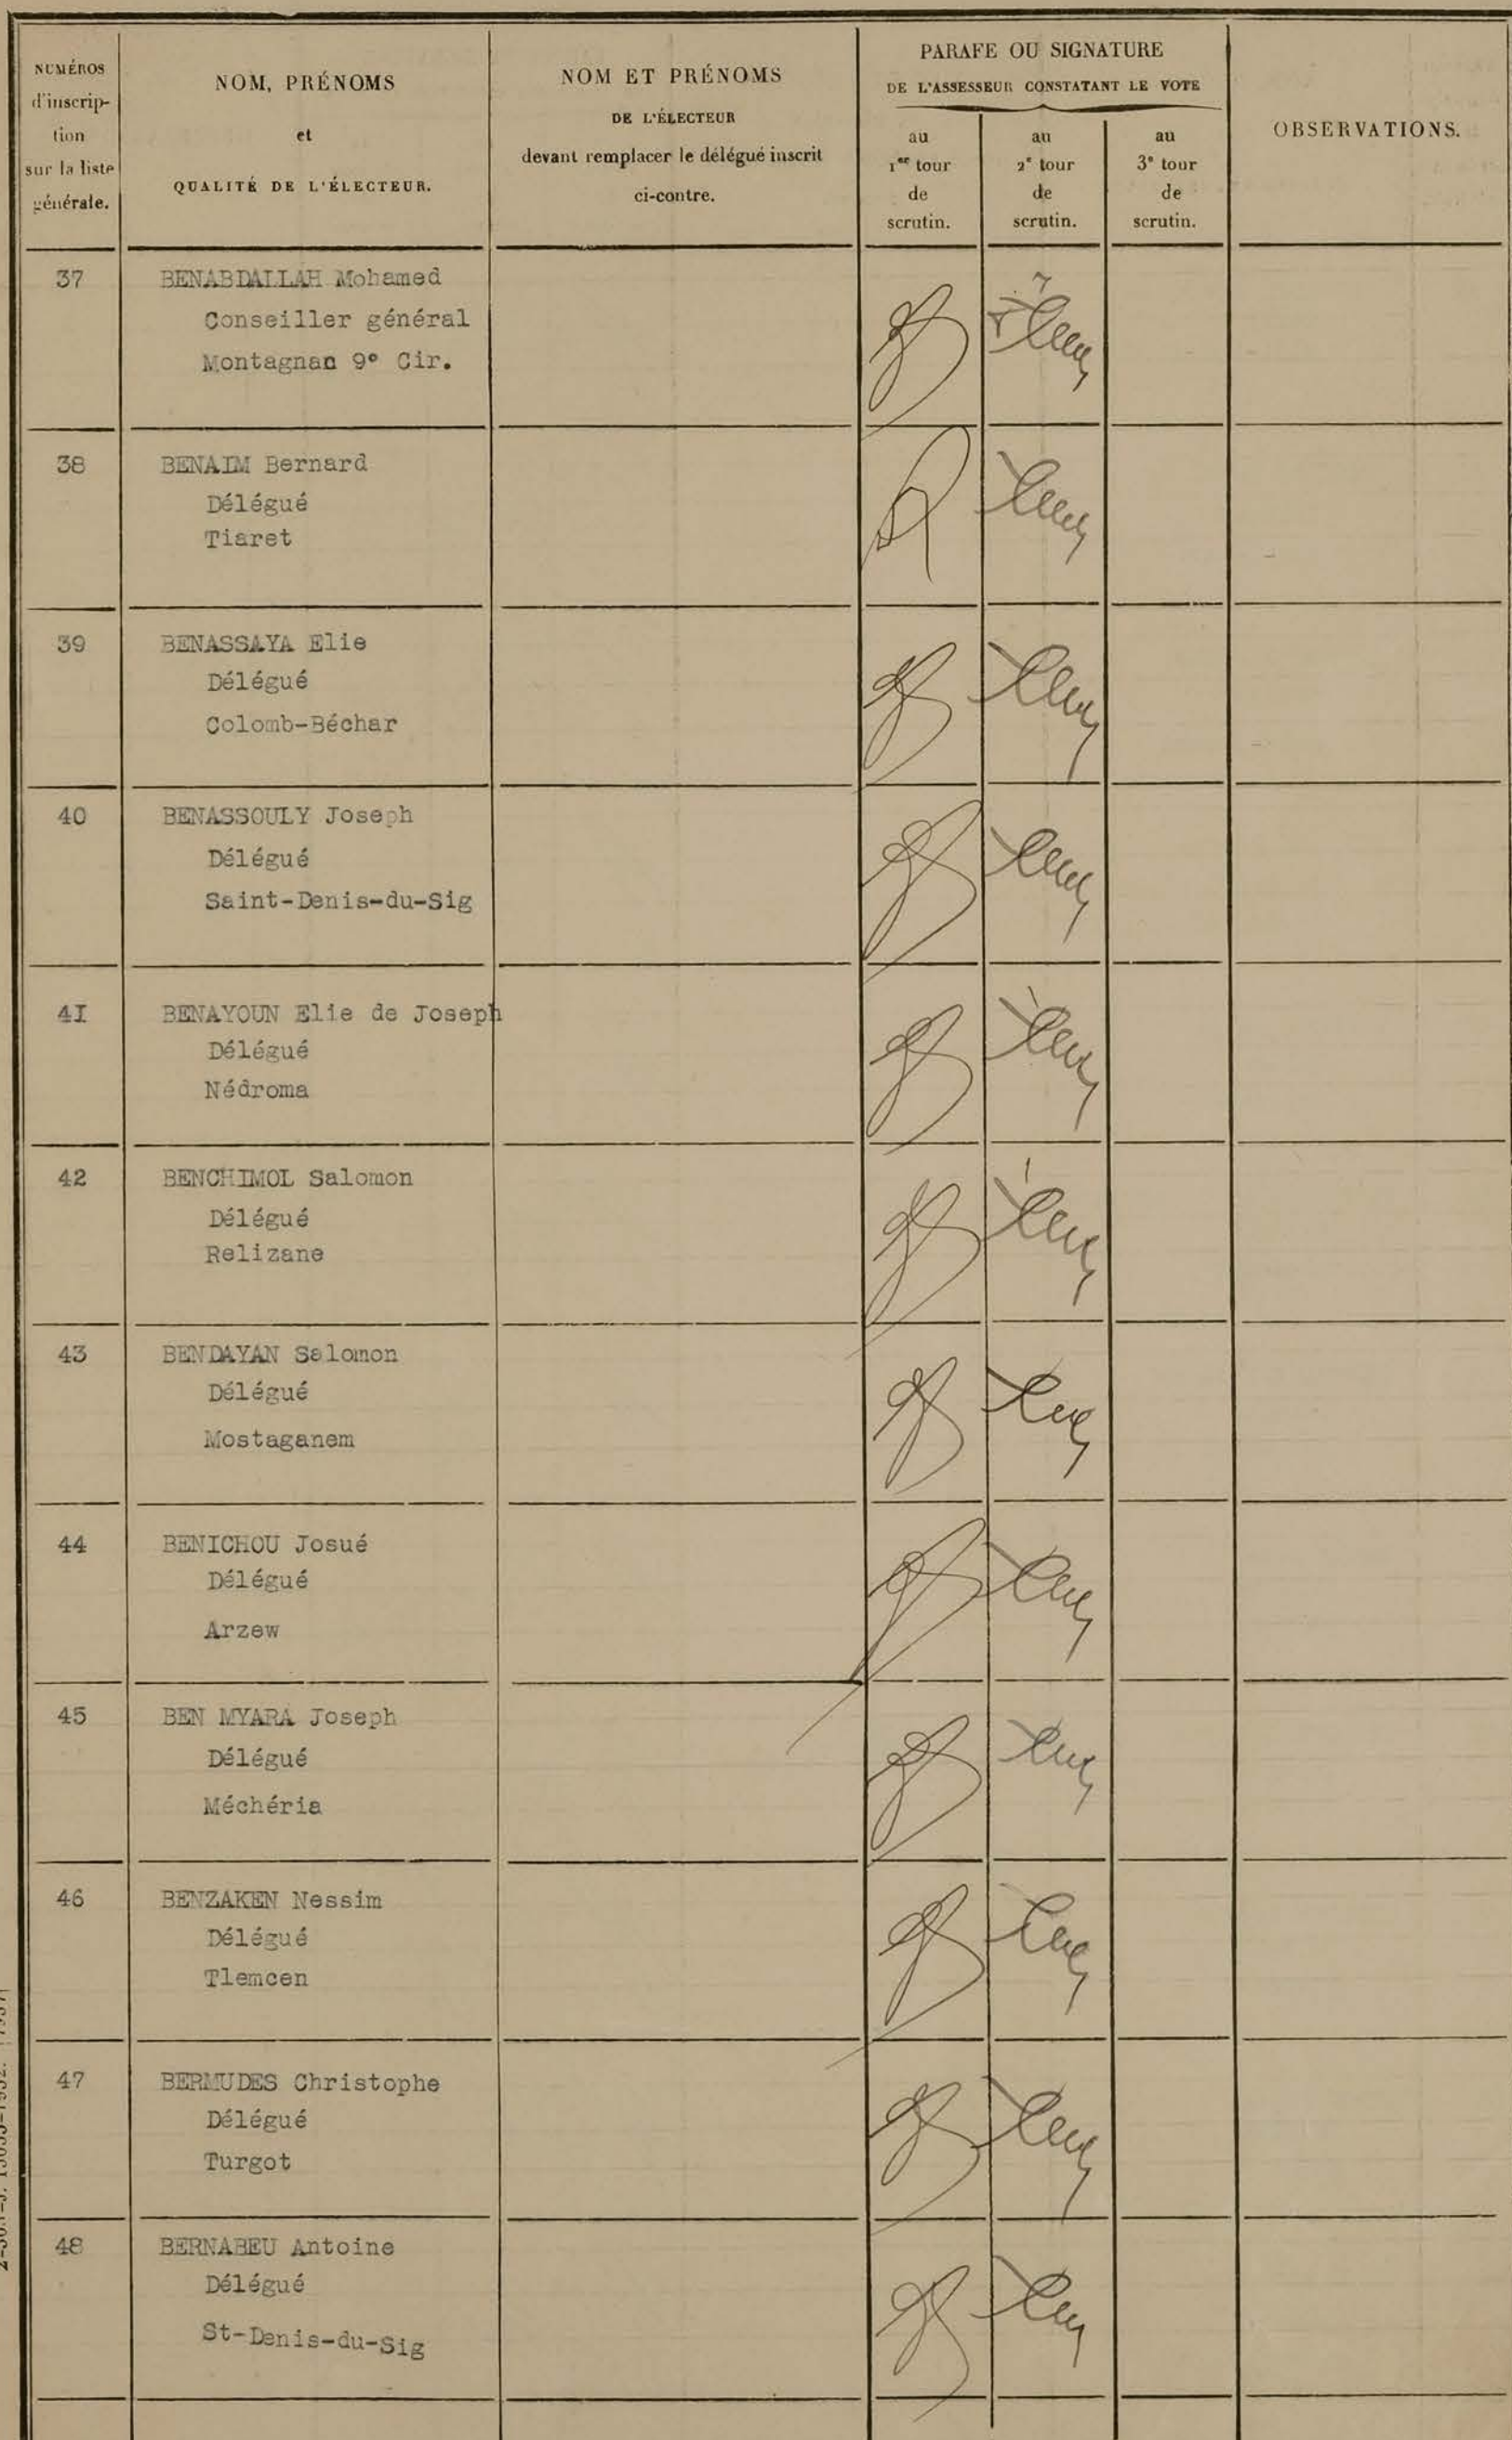 NUMÉROS
d'inscrip-
tion
sur la liste
générale.
NOM, PRÉNOMS
et
QUALITÉ DE L'ÉLECTEUR.
NOM ET PRÉNOMS
DE L'ÉLECTEUR
devant remplacer le délégué inscrit
ci-contre.
PARAFE OU SIGNATURE
DE L'ASSESSEUR CONSTATANT LE VOTE
au
1er tour
de
scrutin.
au
2e tour
de
scrutin.
au
3e tour
de
scrutin.
OBSERVATIONS.
37
BENABDALLAH Mohamed
Conseiller général
Montagnac 9° Cir.
38
BENAIM Bernard
Délégué
Tiaret
39
BENASSAYA Elie
Délégué
Colomb-Béchar
40
BENASSOULY Joseph
Délégué
Saint-Denis-du-Sig
4I
BENAYOUN Elie de Joseph
Délégué
Nédroma
42
BENCHIMOL Salomon
Délégué
Relizane
43
BENDAYAN Salomon
Délégué
Mostaganem
44
BENICHOU Josué
Délégué
Arzew
45
BEN MYARA Joseph
Délégué
Méchéria
46
BENZAKEN Nessim
Délégué
Tlemcen
47
BERMUDES Christophe
Délégué
Turgot
48
BERNABEU Antoine
Délégué
St-Denis-du-Sig